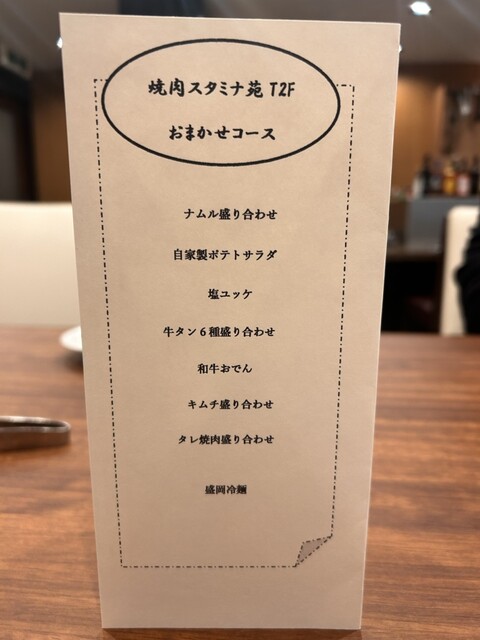 焼肉スタミナ苑 T2F
おまかせコース
ナムル盛り合わせ
自家製ポテトサラダ
塩ユッケ
牛タン６種盛り合わせ
和牛おでん
キムチ盛り合わせ
タレ焼肉盛り合わせ
盛岡冷麺